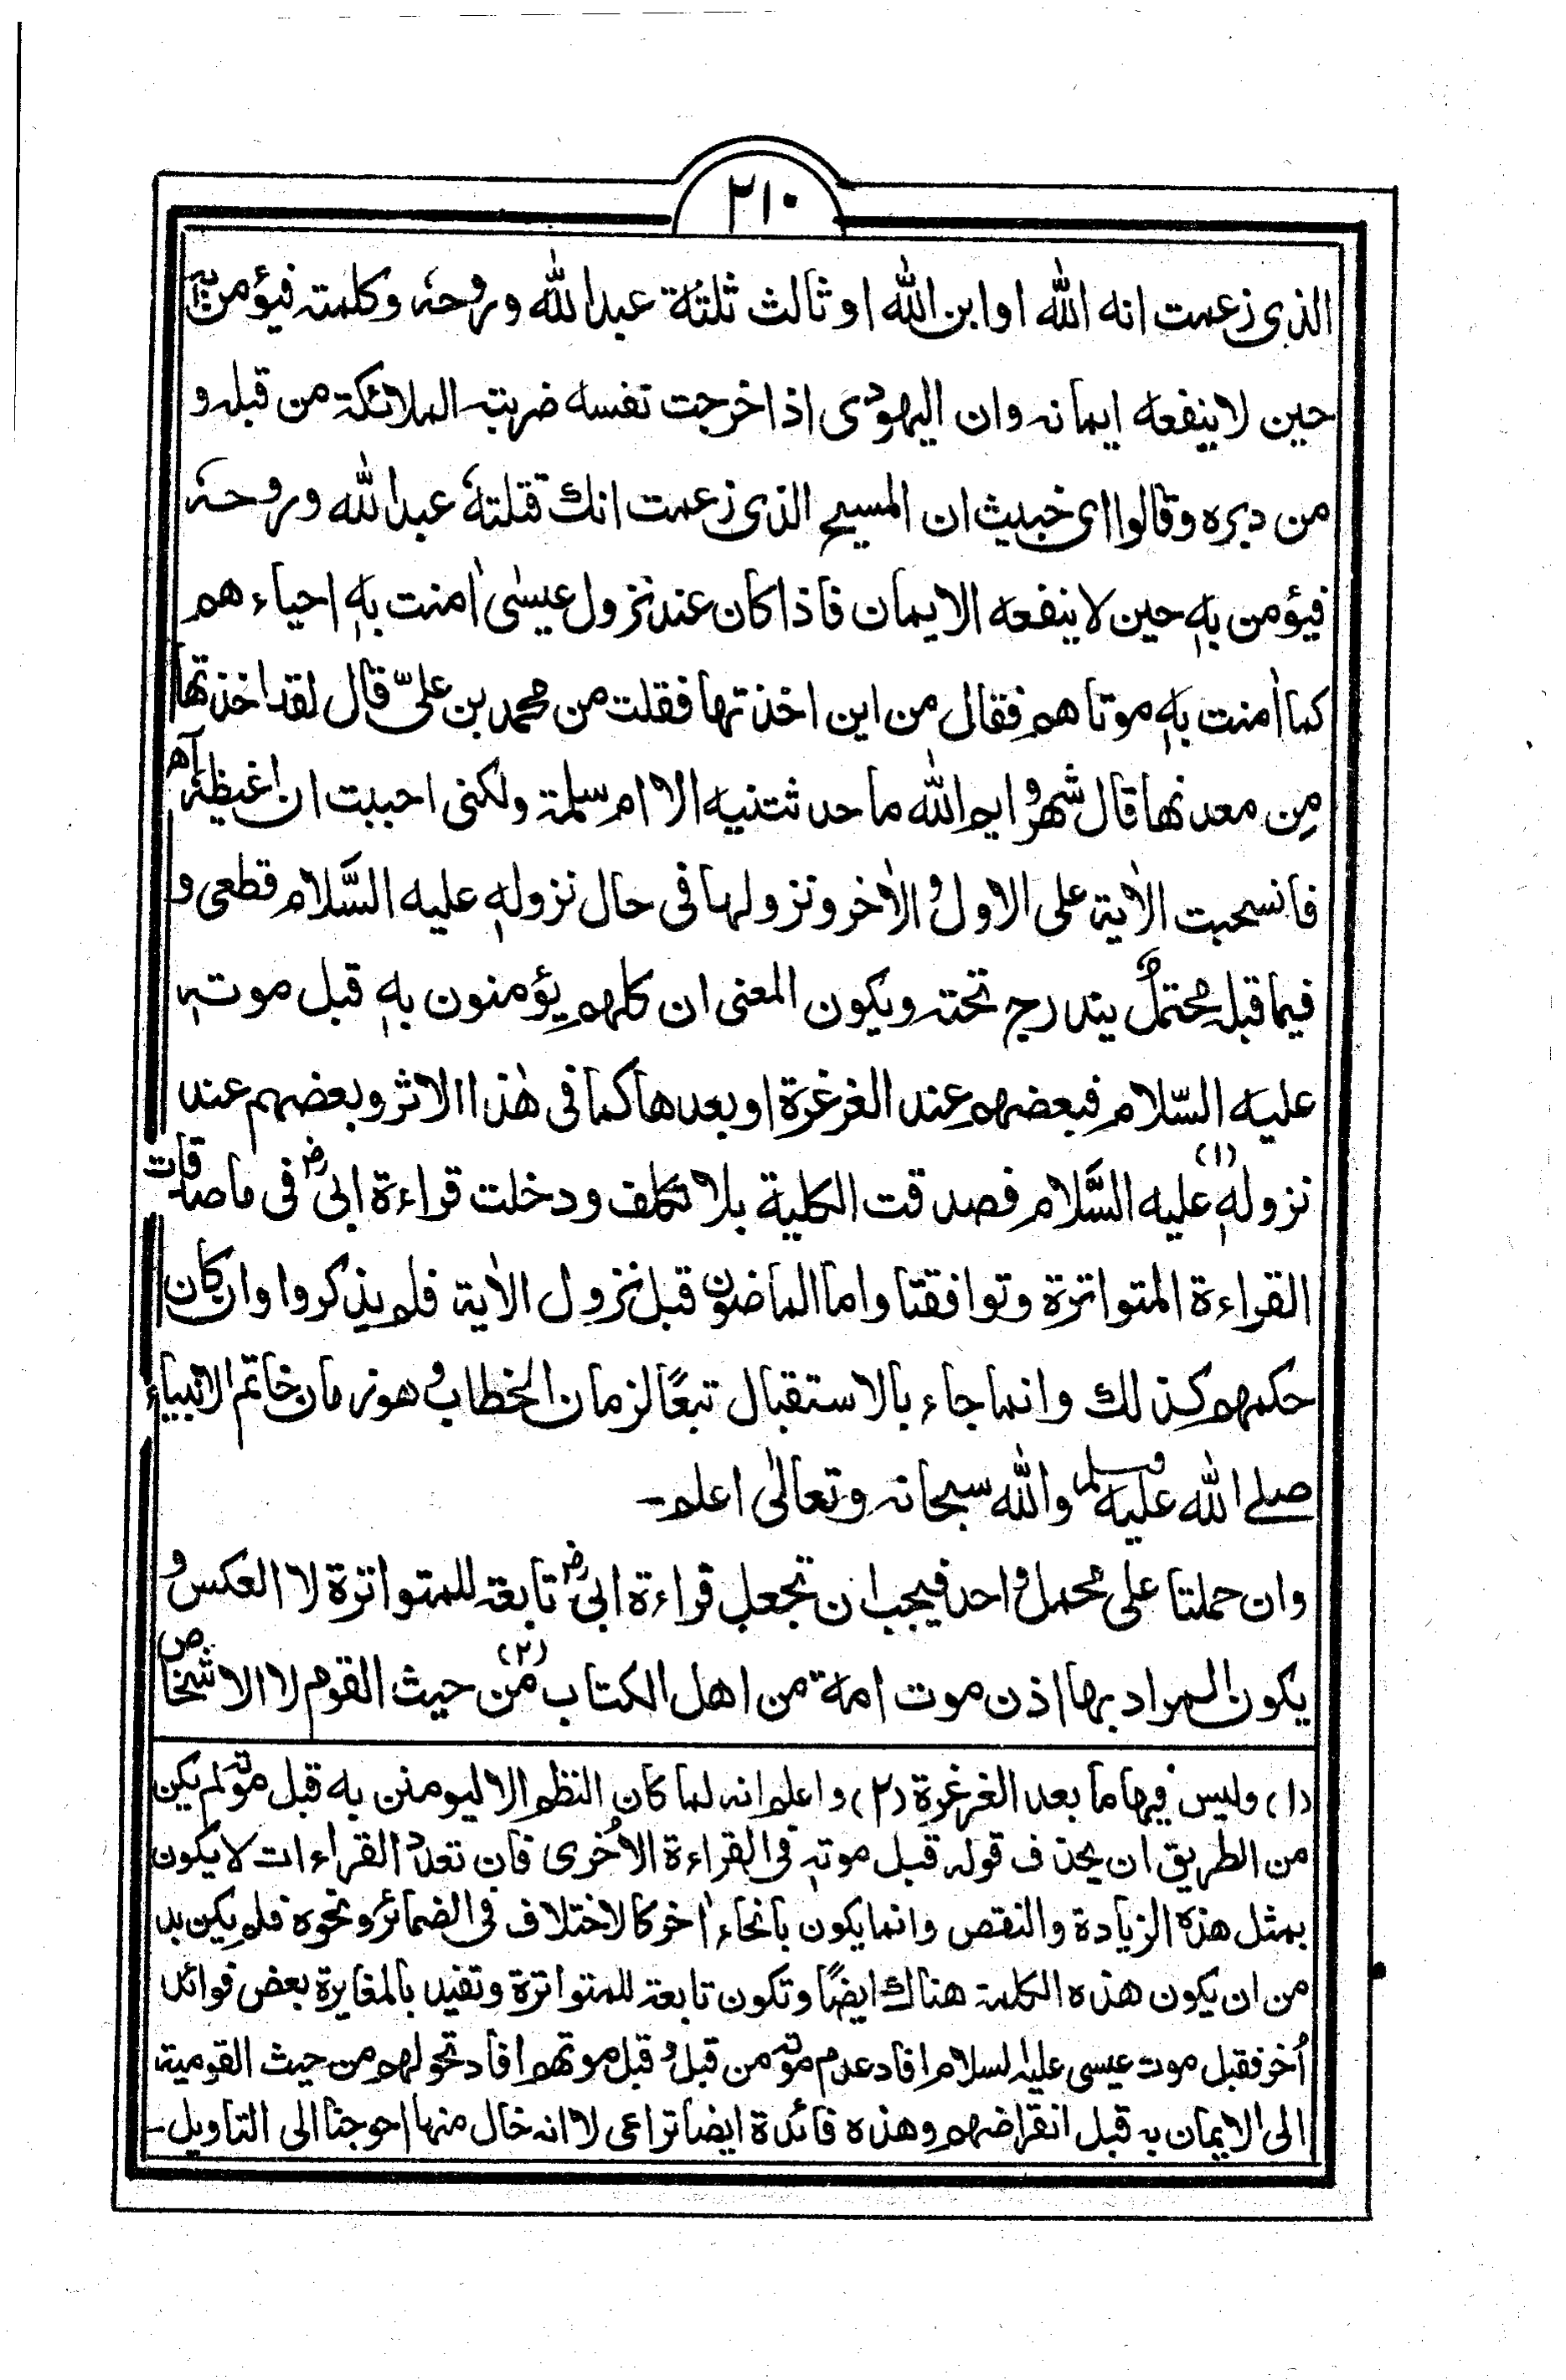 ٢١٠
الذى زعمت انه الله او ابن الله او ثالث ثلثة عبد الله وروحه وكلمته فيؤمن به
حين لا ينفعه ايمانه وان اليهودى اذا خرجت نفسه ضربته الملائكة من قبله و
من دبره وقالوا اى خبيث ان المسيح الذى زعمت انك قتلته عبد الله وروحه
فيؤمن به حين لا ينفعه الايمان فاذا كان عند نزول عيسىٰ اٰمنت به احياءهم
كما اٰمنت به موتاهم فقال من اين اخذتها فقلت من محمد بن علىّ قال لقد اخذتها
مِن معدنها قال شهر وايم الله ما حدثتنيه الا ام سلمة ولكنى احببت ان اغيظه آه
فانسحبت الاٰية على الاول والاٰخر ونزولها فى حال نزوله عليه السَّلام قطعى و
فيما قبل محتمل يندرج تحته ويكون المعنى ان كلهم يؤمنون به قبل موته
عليه السّلام فبعضهم عند الغرغرة او بعدها كما فى هٰذا الاثر وبعضهم عند
نزوله (١) عليه السَّلام فصدقت الكلية بلا تكلف ودخلت قراءة ابىؓ فى ما صدقات
القراءة المتواترة وتوافقتا واما الماضون قبل نزول الاٰية فلم يذكروا وان كان
حكمهم كذلك وانما جاء بالاستقبال تبعًا لزمان الخطاب وهو زمان خاتم الانبياء
صلے الله عليه وسلم والله سبحانه وتعالىٰ اعلم۔
وان حملتا على محمل واحد فيجب ان تجعل قراءة ابىؓ تابعة للمتواترة لا العكس و
يكون المراد بها اذن موت امة من اهل الكتاب (٢) من حيث القوم لا الاشخاص
(١) وليس فيها ما بعد الغرغرة (٢) واعلم انه لما كان النظم الا ليومنن به قبل موته لم يكن
من الطريق ان يحذف قوله قبل موته فى القراءة الاُخرى فان تعدد القراءات لا يكون
بمثل هذه الزيادة والنقص وانما يكون بانحاء اٰخر كالاختلاف فى الضمائر ونحوه فلم يكن بد
من ان يكون هذه الكلمة هناك ايضًا وتكون تابعة للمتواترة وتفيد بالمغايرة بعض فوائد
اُخر فقبل موت عيسى عليه السلام افاد عدم موته من قبل وقبل موتهم افاد تحولهم من حيث القومية
الى الايمان به قبل انقراضهم وهذه فائدة ايضا تراعى لا انه خال منها احوجنا الى التاويل۔